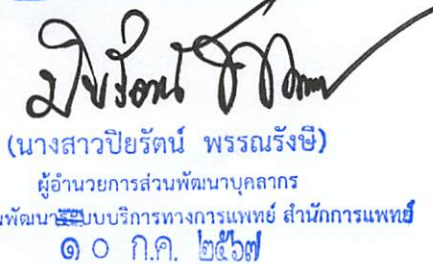 (นางสาวปิยรัตน์ พรรณรังษี)
ผู้อำนวยการส่วนพัฒนาบุคลากร
พัฒนาระบบบริการทางการแพทย์ สำนักการแพทย์
๑๐ ก.ค. ๒๕๖๗